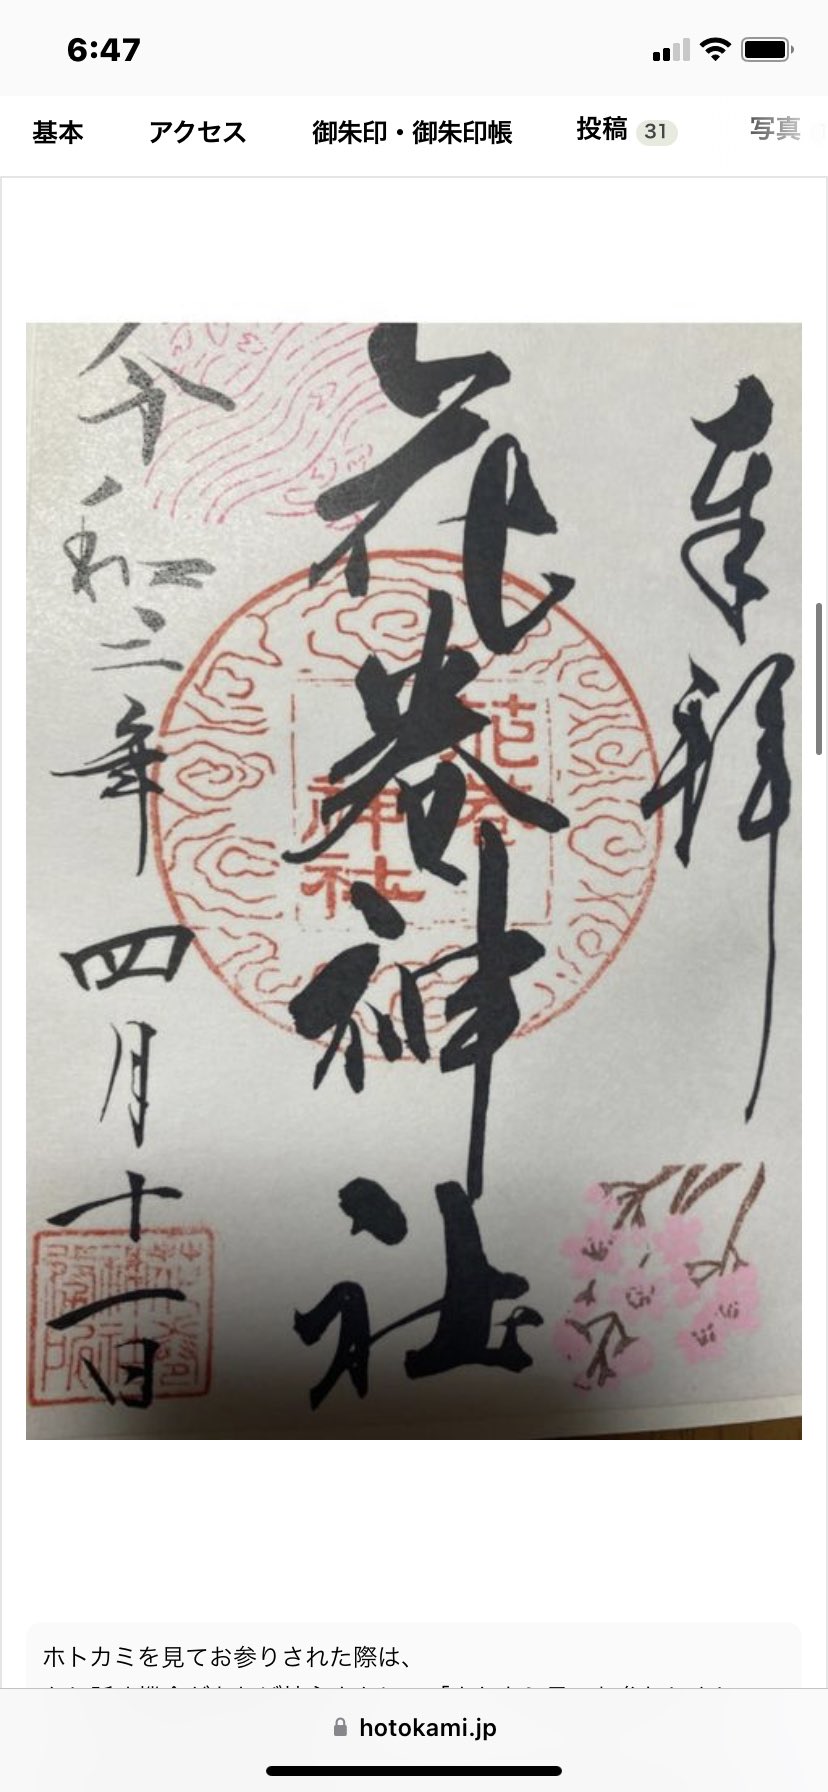 6:47
基本 アクセス 御朱印・御朱印帳 投稿 31 写真
奉拝
花巻神社
花巻
神社
令和三年四月十一日
ホトカミを見てお参りされた際は、
hotokami.jp